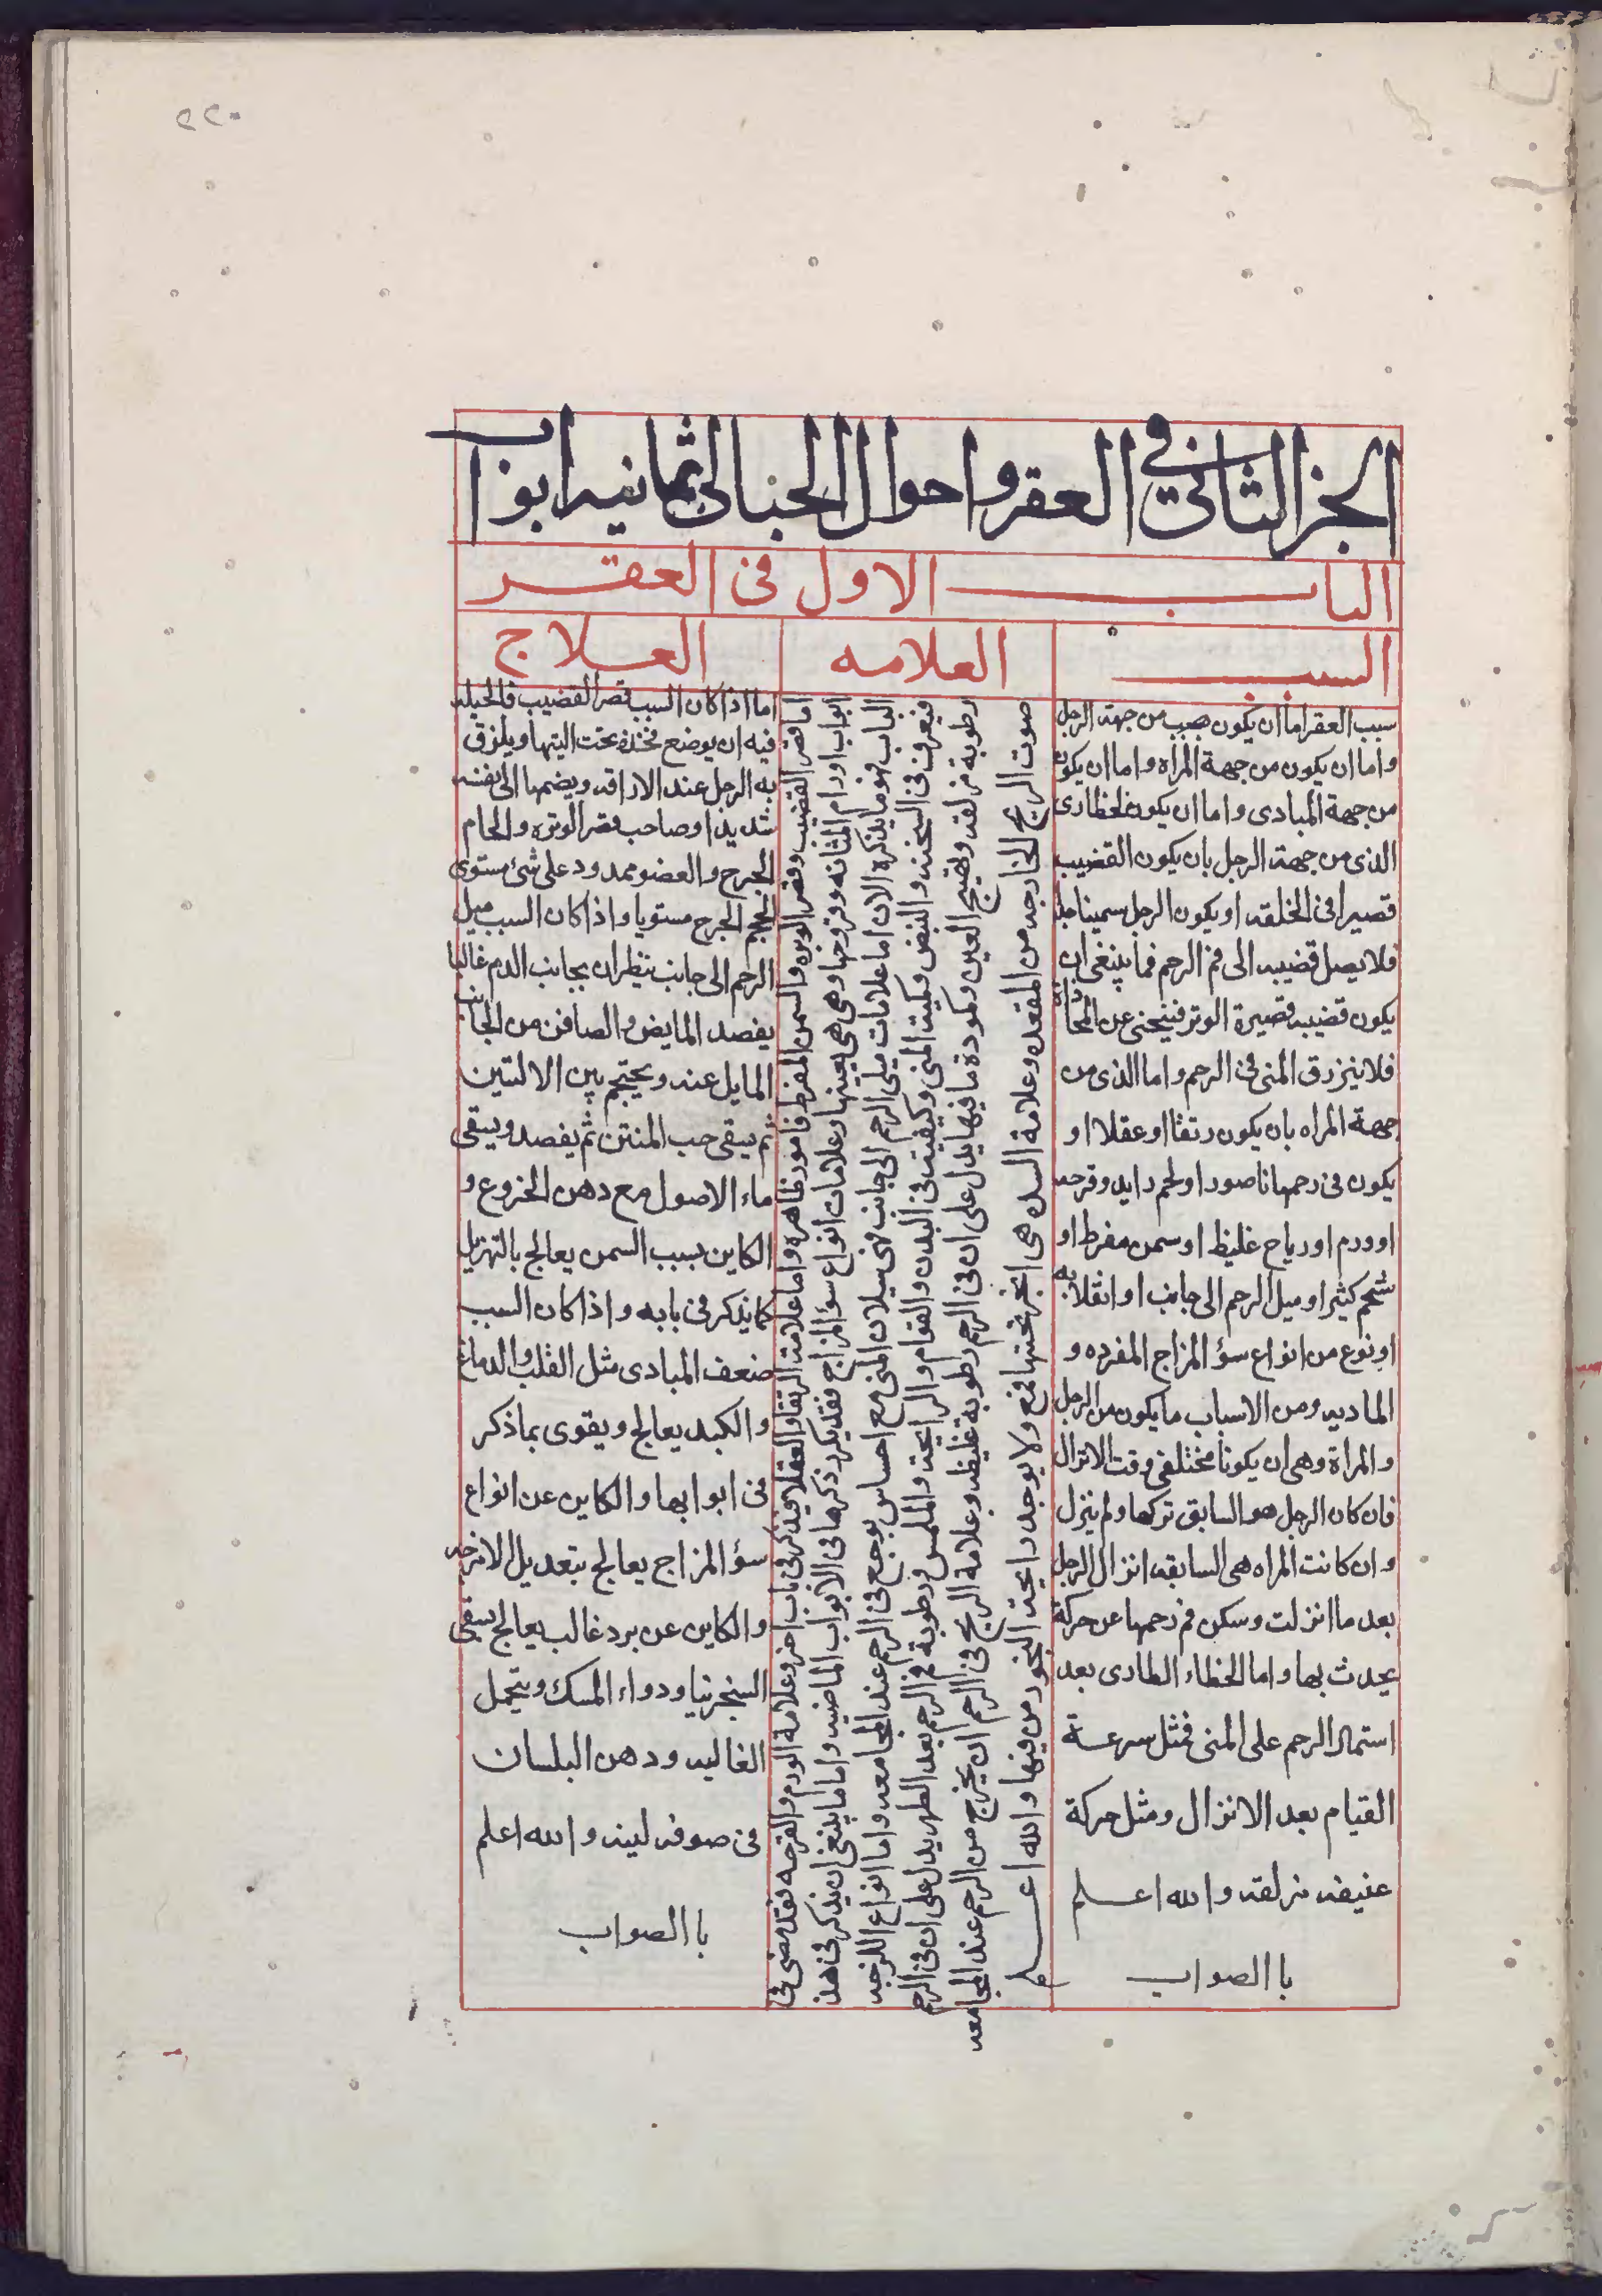 ٢٢٠
الجز الثاني في العقر واحوال الحبالى ثمانيه ابواب
الباب الاول فى العقر
السبب
سبب العقر اما ان يكون من جهة الرجل
واما ان يكون من جهة المراه واما ان يكون
من جهة المبادى واما ان يكون لخطا طارى
الذى من جهة الرجل بان يكون القضيب
قصيرا فى الخلقه او يكون الرجل سمينا جدا
فلا يصل قضيبه الى فم الرحم فما ينبغى ان
يكون قضيبه قصيرة الوتر فينحنى عن المحاذاة
فلا ينزرق المنى فى الرحم واما الذى من
جهة المراه بان يكون رتقا او عقلا او
يكون فى رحمها ناصور او لحم زايد وقرحه
او ورم او رياح غليظ او سمن مفرط او
شحم كثير او ميل الرحم الى جانب او انقلابه
او نوع من انواع سؤ المزاج المفرده و
الماديه ومن الاسباب ما يكون من الرجل
والمراة وهى ان يكونا مختلفى وقت الانزال
فان كان الرجل هو السابق تركها ولم ينزل
وان كانت المراه هى السابقه انزال الرجل
بعد ما انزلت وسكن فم رحمها عن حركة
يحدث بها واما الخطاء الطارى بعد
استمال الرحم على المنى فمثل سرعة
القيام بعد الانزال ومثل حركة
عنيفه مزلقه والله اعلم
با الصواب
العلامه
اما قصر القضيب وقصر الوتره والسمن المفرط فامور ظاهره واما علامة الرتقا والعقلا فيذكر فى باب اخر وعلامة الورم والقرحه فقد مضى فى
ابواب اورام المثانه وقروحها وهى هى بعينها وعلامات انواع سؤ المزاج فقد يكرر ذكرها فى الابواب الماضيه واما ما ينبغى ان يذكر فى هذ
الباب فهو ما يذكره الان اما علامات ميل الرحم الى جانب فهى سيلان المنى مع احساس بوجع فى الرحم عند المجامعه واما انواع اللزجه
فيعرف فى السحنه والنبض وكميت المنى وكيفيته فى البدن والقوام والرايحة والملمس ورطوبة فم الرحم بعد الطهر يدل على ان فى الرحم
رطوبة مزلقه وتهيج العين وكمودة ما فيها يدل على ان فى الرحم رطوبة غليظه وعلامة الريح فى الرحم ان يخرج من الرحم عند المجامعه
صوت الريح الخارجه من المقعده وعلامة السده هى ان يبخر تحتها بقمع ولا يوجد رايحة البخور من فيها والله اعلم
العلاج
اما اذا كان السبب قصر القضيب فالحيله
فيه ان يوضع مخدة تحت اليتها ويلزق
به الرجل عند الاراقه ويضمها الى نفسه
شديدا وصاحب قصر الوتره والحام
الجرح والعضو ممدود على شئ مستوى
الجرح مستويا واذا كان السبب ميل
الرحم الى جانب ينظر ان بجانب الدم غالبا
يفصد المابض والصافن من الجانب
المايل عنه ويحتجم بين الاليتين
ثم يسقى حب المنتن ثم يفصد ويسقى
ماء الاصول مع دهن الخروع و
الكاين بسبب السمن يعالج بالتهزيل
كما يذكر فى بابه واذا كان السبب
ضعف المبادى مثل القلب والدماغ
والكبد يعالج ويقوى بما ذكر
فى ابوابها والكاين عن انواع
سؤ المزاج يعالج بتعديل الامزجه
والكاين عن برد غالب يعالج بسقى
السنجرنيا ودواء المسك ويتحمل
الغاليه ودهن البلسان
فى صوفه لينه والله اعلم
با الصواب